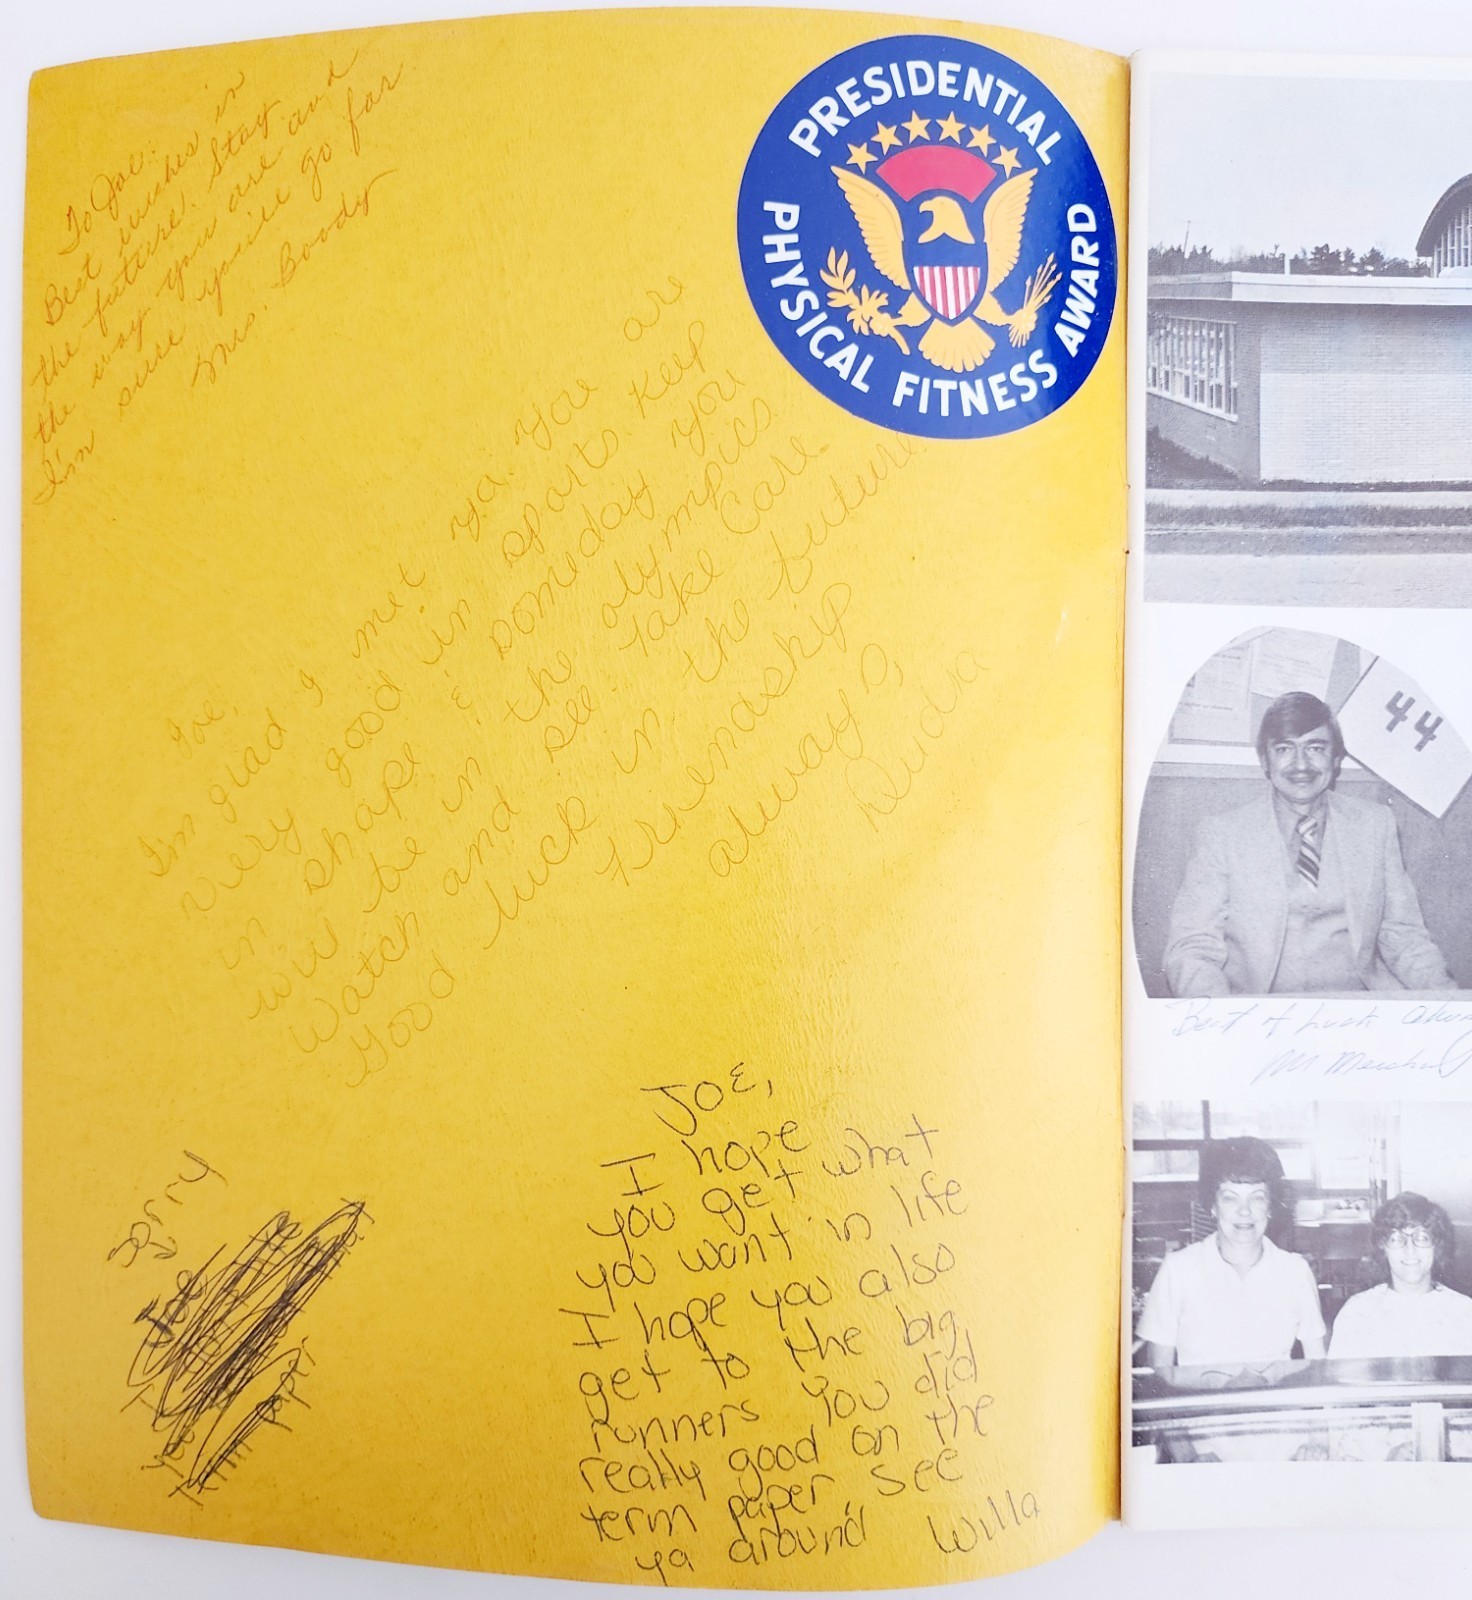 To Joe:
Best wishes in
the future. Stay
the way you are and
I'm sure you'll go far.
Mrs. Boody
PRESIDENTIAL
PHYSICAL FITNESS AWARD
Joe,
I'm glad I met ya. You are
very good in sports. Keep
in shape & someday you
will be in the olympics.
Watch and see. Take Care.
Good luck in the future.
Friendship
always,
Deidra
44
Best of Luck
Jerry
Joe
term paper
JOE,
I hope
you get what
you want in life
I hope you also
get to the big
runners you did
really good on the
term paper, see
ya around Willa